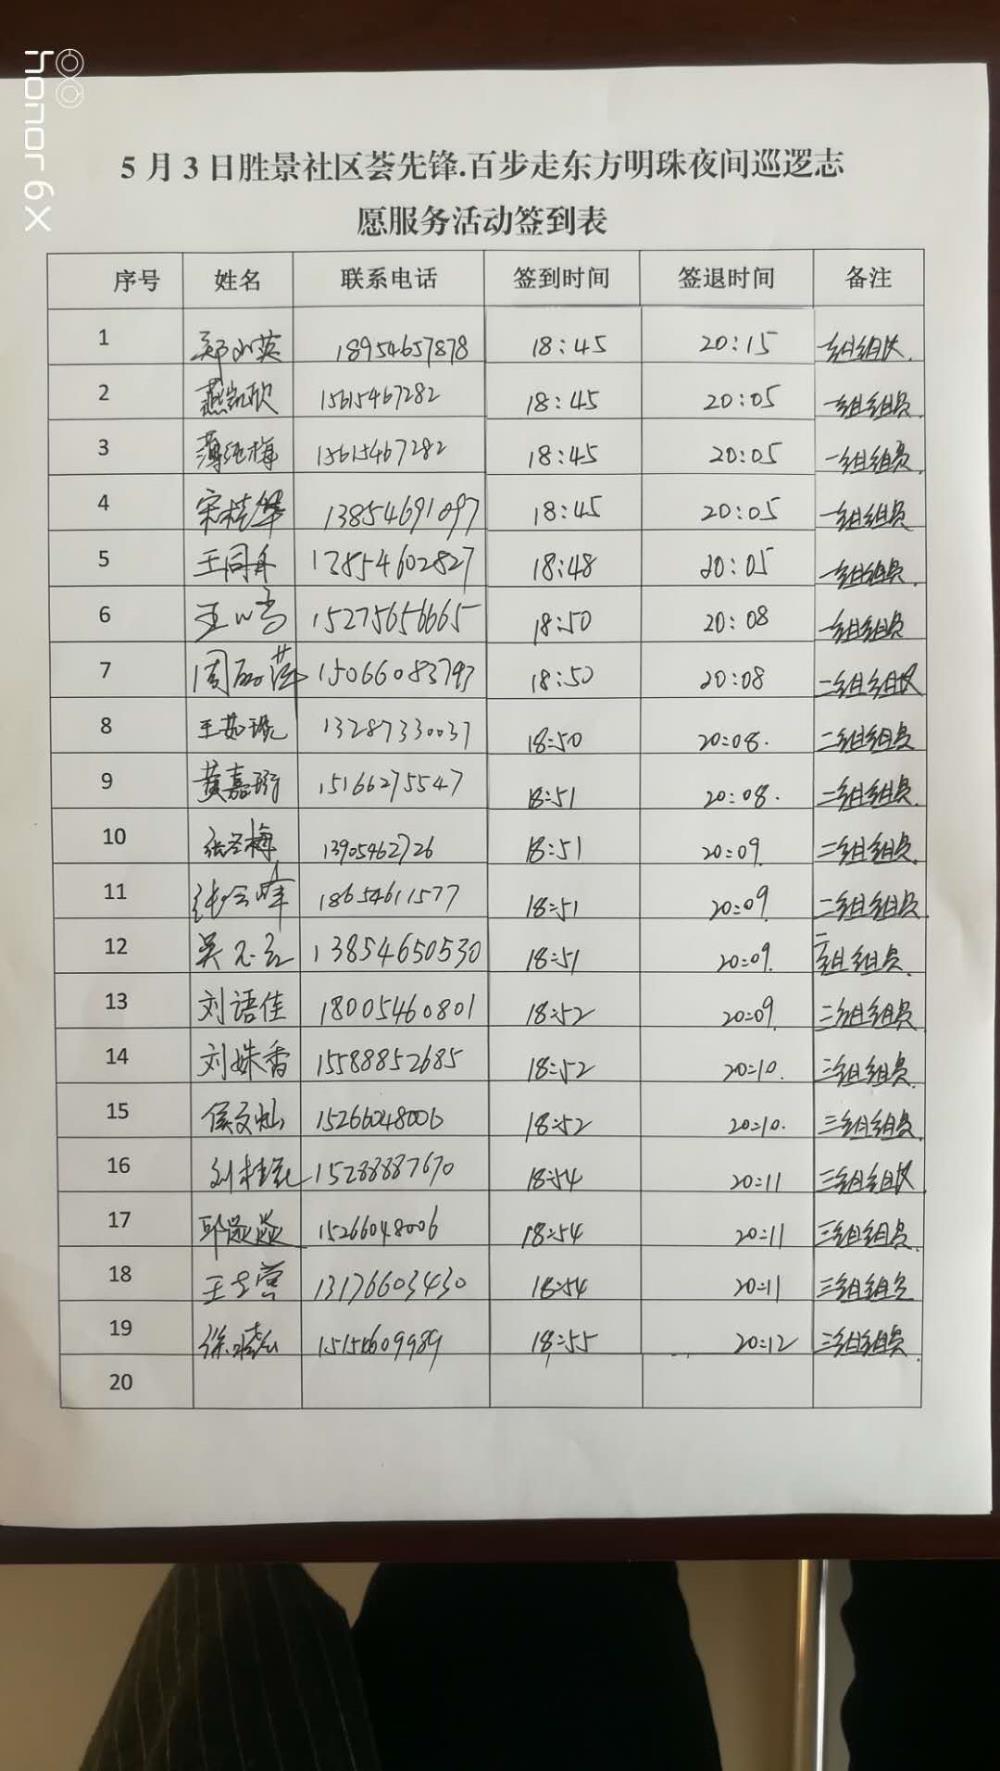 honor 6X
5月3日胜景社区荟先锋.百步走东方明珠夜间巡逻志
愿服务活动签到表
序号 姓名 联系电话 签到时间 签退时间 备注
1 郑小英 18954657878 18:45 20:15 一组组长.
2 燕凯欣 15615467282 18:45 20:05 一组组员.
3 薄纯梅 15615467282 18:45 20:05 一组组员.
4 宋桂华 13854691097 18:45 20:05 一组组员
5 王同舟 13854602827 18:48 20:05 一组组员.
6 15275656665 18:50 20:08 一组组员
7 周丽萍 15066083793 18:50 20:08 二组组长
8 王茹琨 13287330037 18:50 20:08. 二组组员
9 黄嘉 15166275547 18:51 20:08. 二组组员.
10 梅 13905462726 18:51 20:09. 二组组员.
11 张会峰 18654611577 18:51 20:09. 二组组员
12 吴 13854650530 18:51 20:09. 组组员.
13 刘语佳 18005460801 18:52 20:09. 三组组员
14 刘姝香 15588852685 18:52 20:10. 三组组员.
15 侯文灿 15266048006 18:52 20:10. 三组组员.
16 刘桂 15288887670 18:54 20:11 三组组长
17 15266048006 18:54 20:11 三组组员.
18 王 13176603430 18:54 20:11 三组组员
19 徐晓 18:55 20:12 三组组员.
20